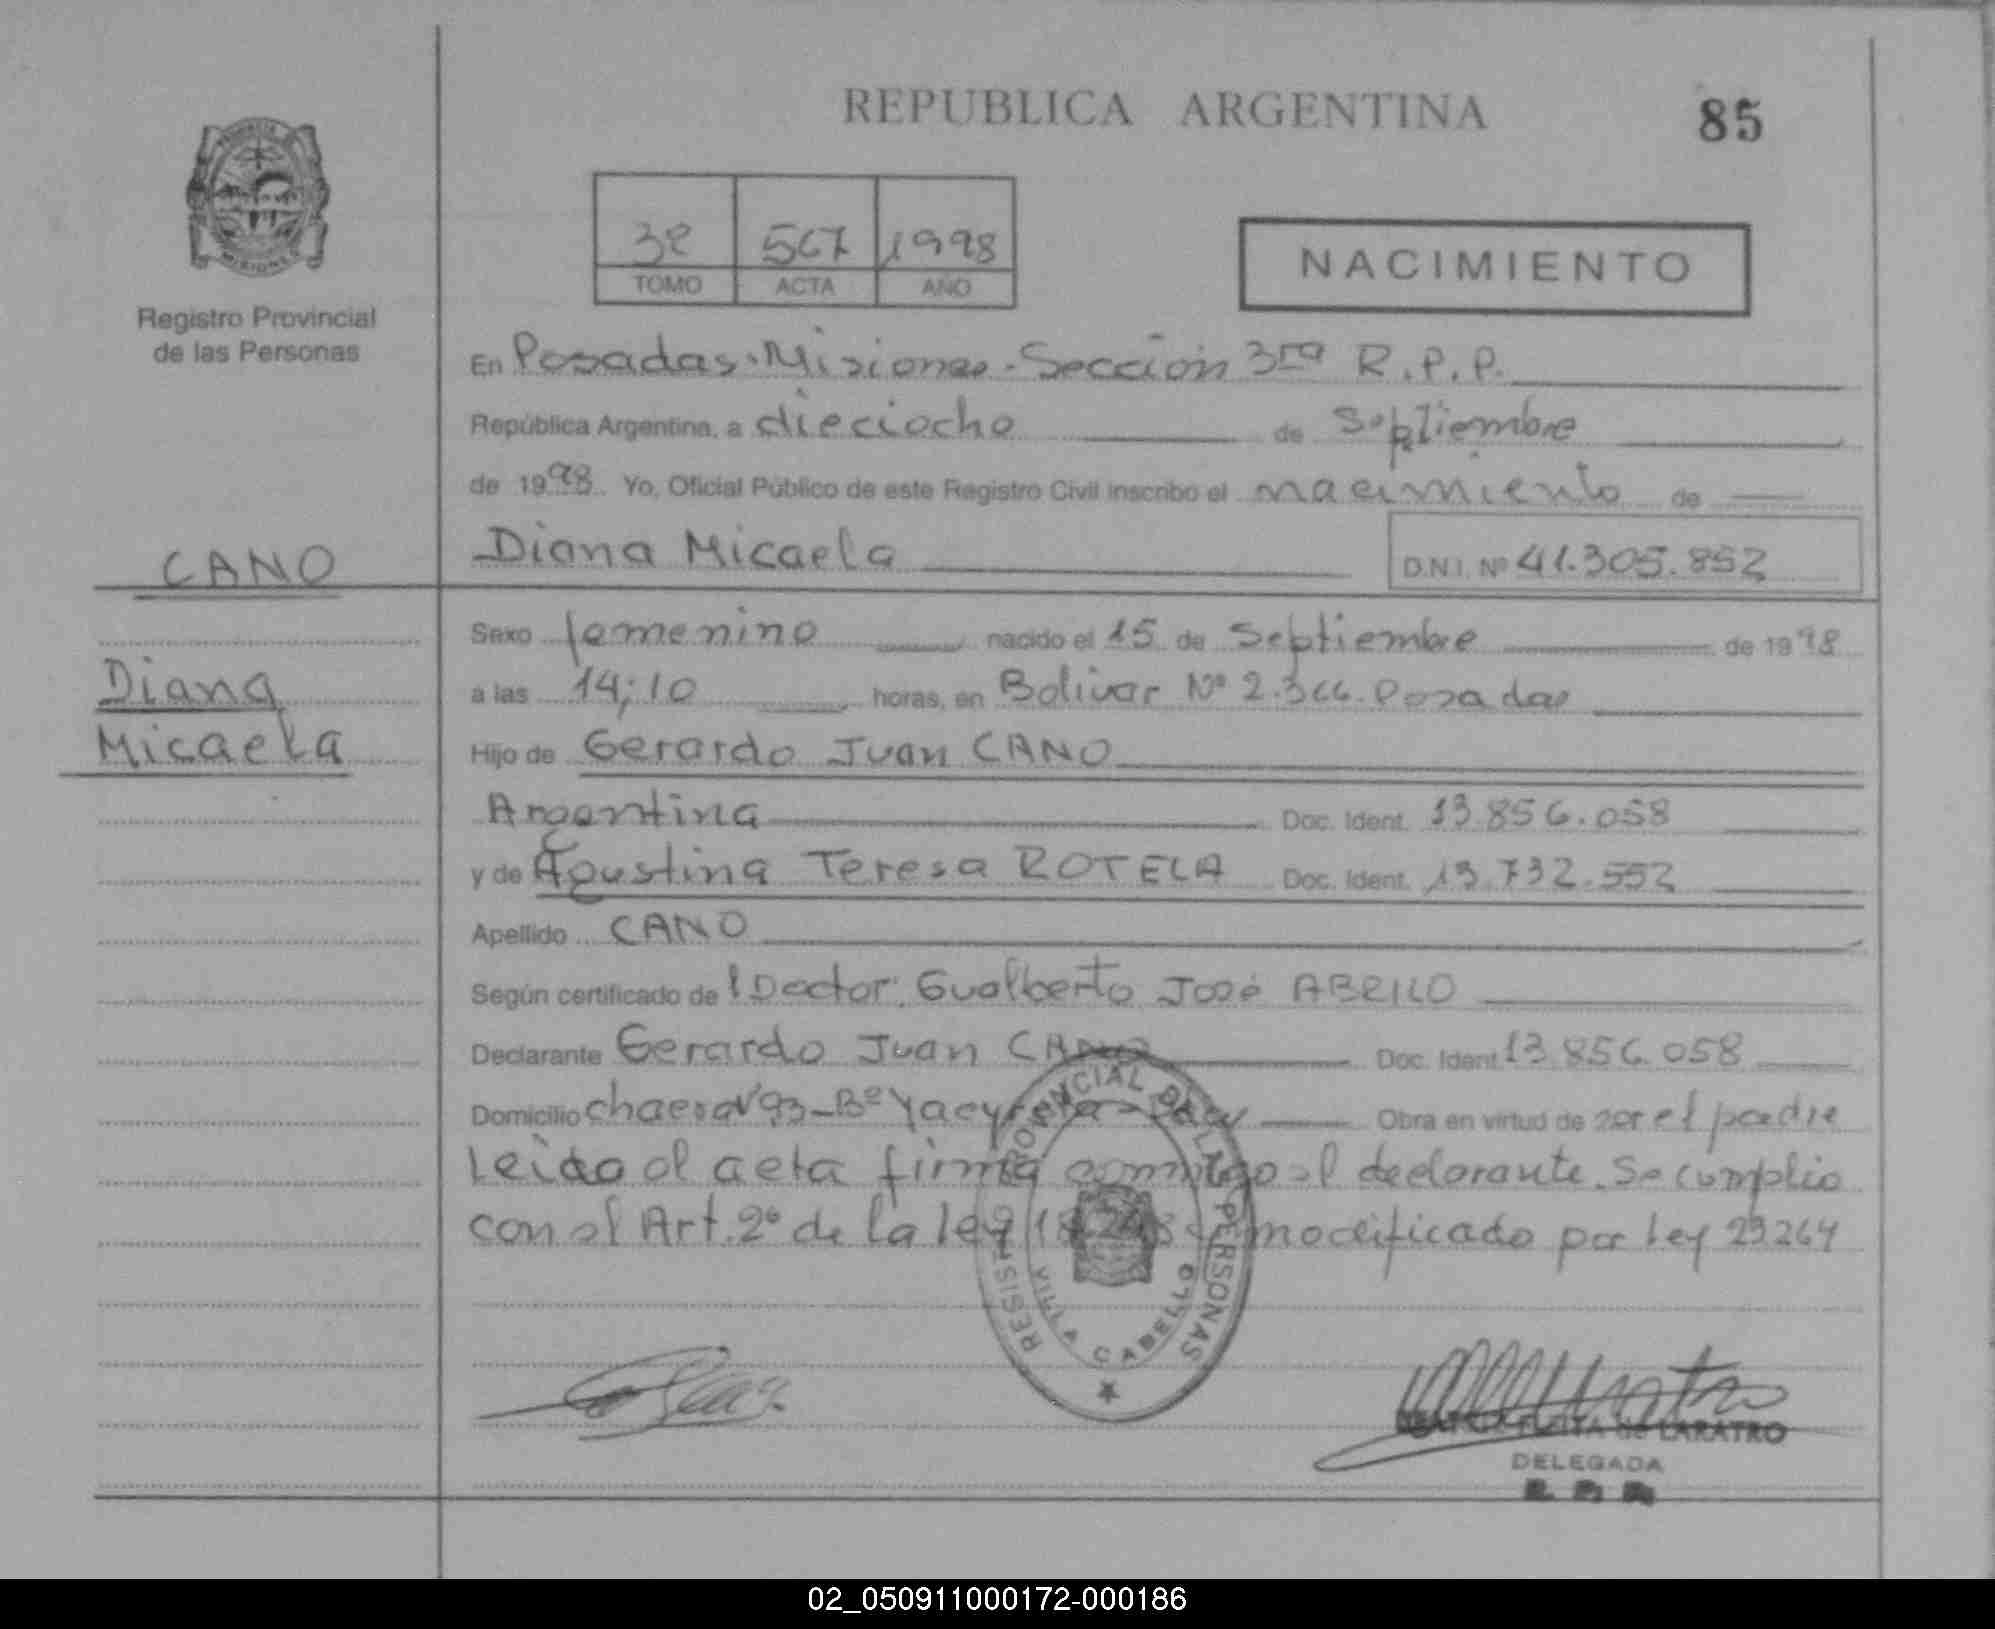 REPUBLICA ARGENTINA
85
PROVINCIA
MISIONES
Registro Provincial
de las Personas
3º 567 1998
TOMO ACTA AÑO
NACIMIENTO
En Posadas-Misiones-Sección 3ra R.P.P.
República Argentina, a dieciocho de Septiembre
de 1998 Yo, Oficial Público de este Registro Civil inscribo el nacimiento de
CANO
Diana Micaela
D.N.I. Nº 41.305.852
Sexo femenino nacido el 15 de Septiembre de 1998
Diana
a las 14;10 horas, en Bolivar Nº 2.366. Posadas
Micaela
Hijo de Gerardo Juan CANO
Argentina Doc. Ident. 13.856.058
y de Agustina Teresa ROTELA Doc. Ident. 13.732.552
Apellido CANO
Según certificado del Doctor: Gualberto José ABRILO
Declarante Gerardo Juan CANO Doc. Ident. 13.856.058
Domicilio 93-Bº Yacyreta Obra en virtud de ser el padre
Leida el acta firma conmigo el declarante. Se cumplio
con el Art. 2º de la ley 18248 modificado por Ley 23264
REGISTRO PROVINCIAL DE LAS PERSONAS
VILLA CABELLO
de LARATRO
DELEGADA
02_050911000172-000186